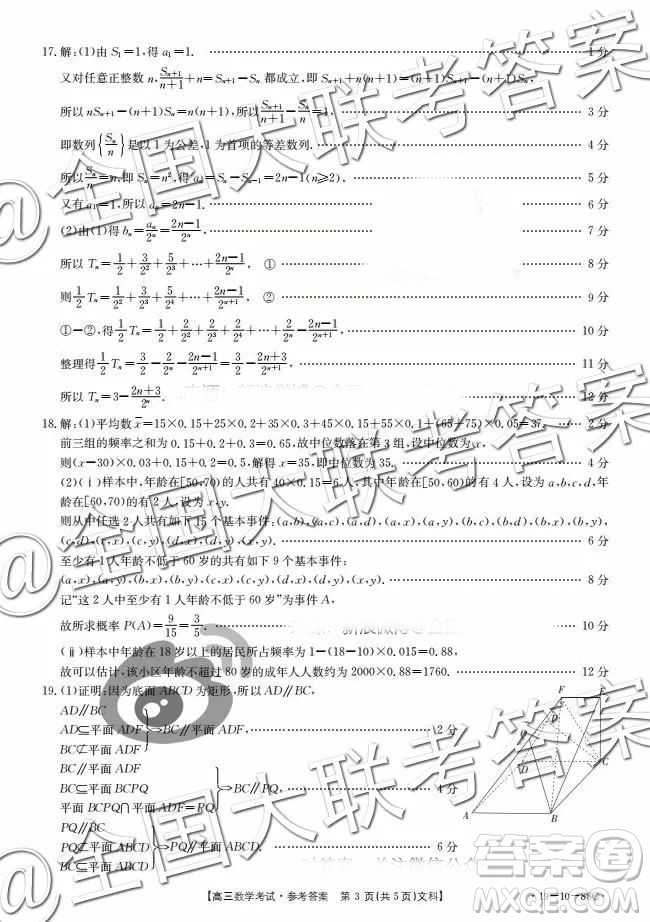 17.解:(1)由 S₁=1,得 a₁=1. 1 分
又对任意正整数 n, Sₙ₊₁/(n+1)+n=Sₙ₊₁-Sₙ 都成立,即 Sₙ₊₁+n(n+1)=(n+1)Sₙ₊₁-(n+1)Sₙ,
所以 nSₙ₊₁-(n+1)Sₙ=n(n+1),所以 Sₙ₊₁/(n+1)-Sₙ/n=1, 3 分
即数列{Sₙ/n}是以 1 为公差,1 为首项的等差数列. 4 分
所以 Sₙ/n=n,即 Sₙ=n²,得 aₙ=Sₙ-Sₙ₋₁=2n-1(n≥2), 5 分
又有 a₁=1,所以 aₙ=2n-1. 6 分
(2)由(1)得 bₙ=aₙ/2ⁿ=(2n-1)/2ⁿ, 7 分
所以 Tₙ=1/2+3/2²+5/2³+…+(2n-1)/2ⁿ, ① 8 分
则 1/2 Tₙ=1/2²+3/2³+5/2⁴+…+(2n-1)/2ⁿ⁺¹, ② 9 分
①-②,得 1/2 Tₙ=1/2+2/2²+2/2³+2/2⁴+…+2/2ⁿ-(2n-1)/2ⁿ⁺¹, 10 分
整理得 1/2 Tₙ=3/2-2/2ⁿ-(2n-1)/2ⁿ⁺¹=3/2-(2n+3)/2ⁿ⁺¹, 11 分
所以 Tₙ=3-(2n+3)/2ⁿ. 12 分
18.解:(1)平均数 x̄=15×0.15+25×0.2+35×0.3+45×0.15+55×0.1+(65+75)×0.05=37. 2 分
前三组的频率之和为 0.15+0.2+0.3=0.65,故中位数落在第 3 组,设中位数为 x,
则(x-30)×0.03+0.15+0.2=0.5,解得 x=35,即中位数为 35. 4 分
(2)(ⅰ)样本中,年龄在[50,70)的人共有 40×0.15=6 人,其中年龄在[50,60)的有 4 人,设为 a,b,c,d,年
龄在[60,70)的有 2 人,设为 x,y.
则从中任选 2 人共有如下 15 个基本事件:(a,b),(a,c),(a,d),(a,x),(a,y),(b,c),(b,d),(b,x),(b,y),
(c,d),(c,x),(c,y),(d,x),(d,y),(x,y). 6 分
至少有 1 人年龄不低于 60 岁的共有如下 9 个基本事件:
(a,x),(a,y),(b,x),(b,y),(c,x),(c,y),(d,x),(d,y),(x,y). 8 分
记“这 2 人中至少有 1 人年龄不低于 60 岁”为事件 A,
故所求概率 P(A)=9/15=3/5. 10 分
(ⅱ)样本中年龄在 18 岁以上的居民所占频率为 1-(18-10)×0.015=0.88,
故可以估计,该小区年龄不超过 80 岁的成年人人数约为 2000×0.88=1760. 12 分
19.(1)证明:因为底面 ABCD 为矩形,所以 AD∥BC,
AD∥BC
AD⊆平面 ADF
BC⊄平面 ADF
⇒BC∥平面 ADF, 2 分
BC∥平面 ADF
BC⊆平面 BCPQ
平面 BCPQ∩平面 ADF=PQ
⇒BC∥PQ, 4 分
PQ∥BC
PQ⊄平面 ABCD
BC⊆平面 ABCD
⇒PQ∥平面 ABCD. 6 分
F
E
Q
P
D
C
A
B
【高三数学考试·参考答案 第 3 页(共 5 页)文科】
@全国大联考答案
@全国大联考答案
答案圈